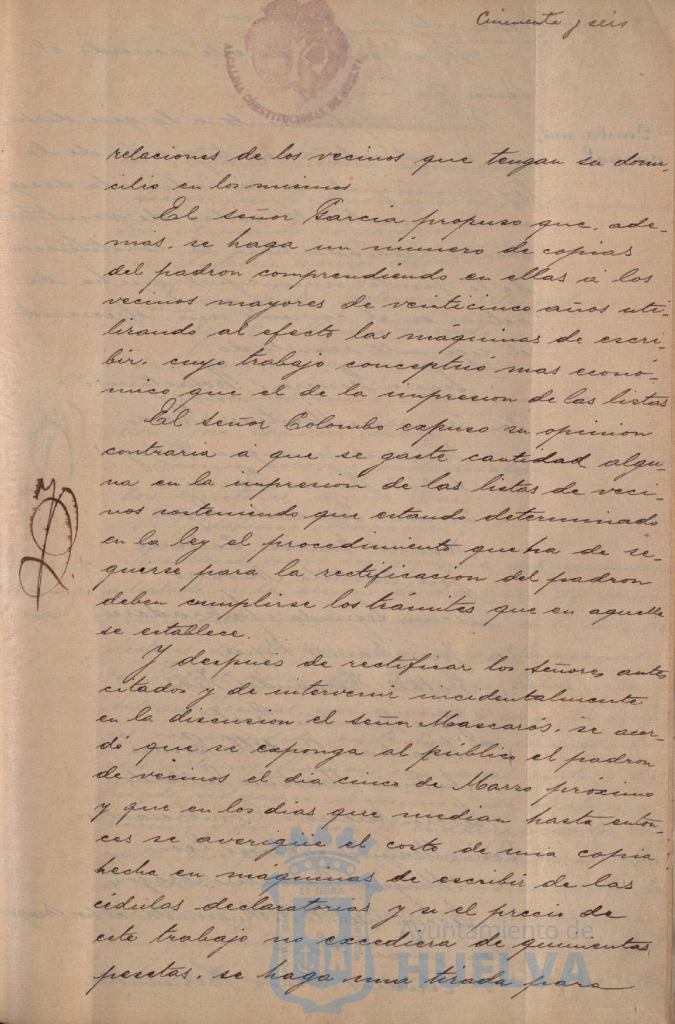 Cincuenta y seis
ALCALDIA CONSTITUCIONAL DE HUELVA
relaciones de los vecinos que tengan su domi-
cilio en los mismos
El señor Garcia propuso que, ade-
mas, se haga un número de copias
del padron comprendiendo en ellas á los
vecinos mayores de veinticinco años uti-
lizando al efecto las máquinas de escri-
bir, cuyo trabajo conceptuó mas econó-
mico que el de la impresion de las listas
El señor Colombo expuso su opinion
contraria á que se gaste cantidad algu-
na en la impresion de las listas de veci-
nos sosteniendo que estando determinado
en la ley el procedimiento que ha de se-
guirse para la rectificacion del padron
deben cumplirse los trámites que en aquella
se establece.
Y después de rectificar los señores antes
citados y de intervenir incidentalmente
en la discusion el señor Mascarós, se acor-
dó que se exponga al público el padron
de vecinos el dia cinco de Marzo próximo
y que en los dias que median hasta enton-
ces se averigüe el costo de una copia
hecha en máquinas de escribir de las
cédulas declaratorias y si el precio de
este trabajo no excediera de quinientas
pesetas, se haga una tirada para
Ayuntamiento de
HUELVA